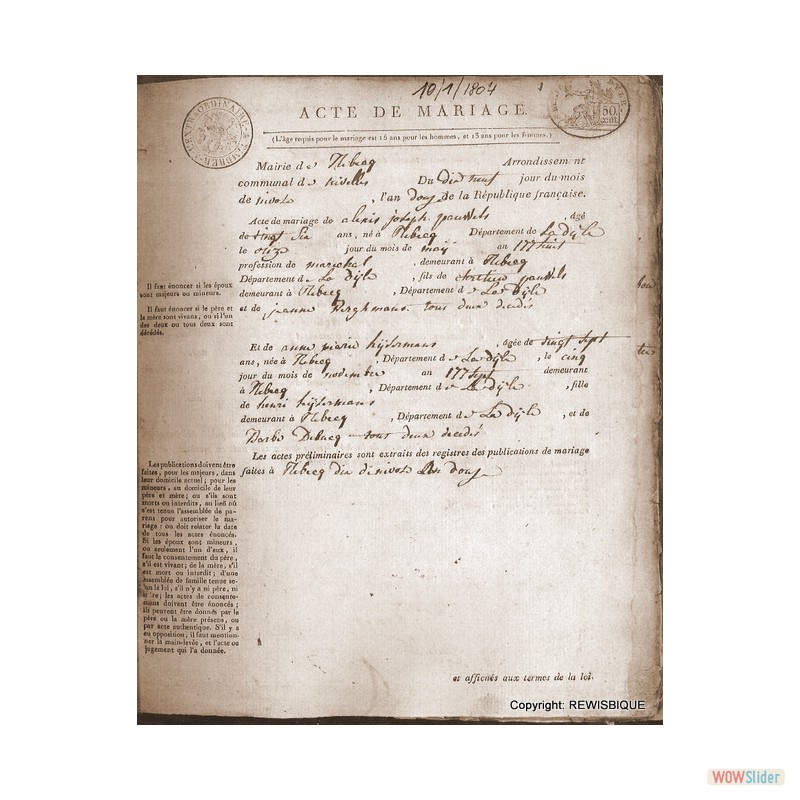 10/1/1804
EXTRAORDINAIRE
ACTE DE MARIAGE.
50
(L'âge requis pour le mariage est 15 ans pour les hommes, et 13 ans pour les femmes.)
Mairie de Rebecq Arrondissem nt
communal de nivelles Du dix neuf jour du mois
de nivose , l'an douze de la République française.
Acte de mariage de alexis joseph pauwels , âgé
de vingt six ans, né à Rebecq Département de La dyle
le onze jour du mois de may an 177 huit
profession de marechal , demeurant à Rebecq
Département de La dyle , fils de pauwels
demeurant à Rebecq , Département de La dyle
et de jeanne Berghmans tous deux decedés
Et de anne marie heijlermans , âgée de vingt sept
ans, née à Rebecq , Département de La dyle , le cinq
jour du mois de novembre an 177 sept demeurant
à Rebecq , Département de La dyle , fille
de henri heijlermans
demeurant à Rebecq , Département de La dyle , et de
Barbe Debucq tous deux decedés
Les actes préliminaires sont extraits des registres des publications de mariage
faites à Rebecq dix de nivose L'an douze
et affichés aux termes de la loi.
Il faut énoncer si les époux
sont majeurs ou mineurs.
Il faut énoncer si le père et
la mère sont vivans, ou si l'un
des deux ou tous deux sont
décédés.
Les publications doivent être
faites, pour les majeurs, dans
leur domicile actuel; pour les
mineurs, au domicile de leur
père et mère; ou s'ils sont
morts ou interdits, au lieu où
s'est tenue l'assemblée de pa-
rens pour autoriser le ma-
riage: on doit relater la date
de tous les actes énoncés.
Si les époux sont mineurs,
ou seulement l'un d'eux, il
faut le consentement du père,
s'il est vivant; de la mère, s'il
est mort ou interdit; d'une
assemblée de famille tenue se-
lon la loi, s'il n'y a ni père, ni
mère; les actes de consente-
mens doivent être énoncés;
ils peuvent être donnés par le
père ou la mère présens, ou
par acte authentique. S'il y a
eu opposition, il faut mention-
ner la main-levée, et l'acte ou
jugement qui l'a donnée.
Copyright: REWISBIQUE
WOWSlider